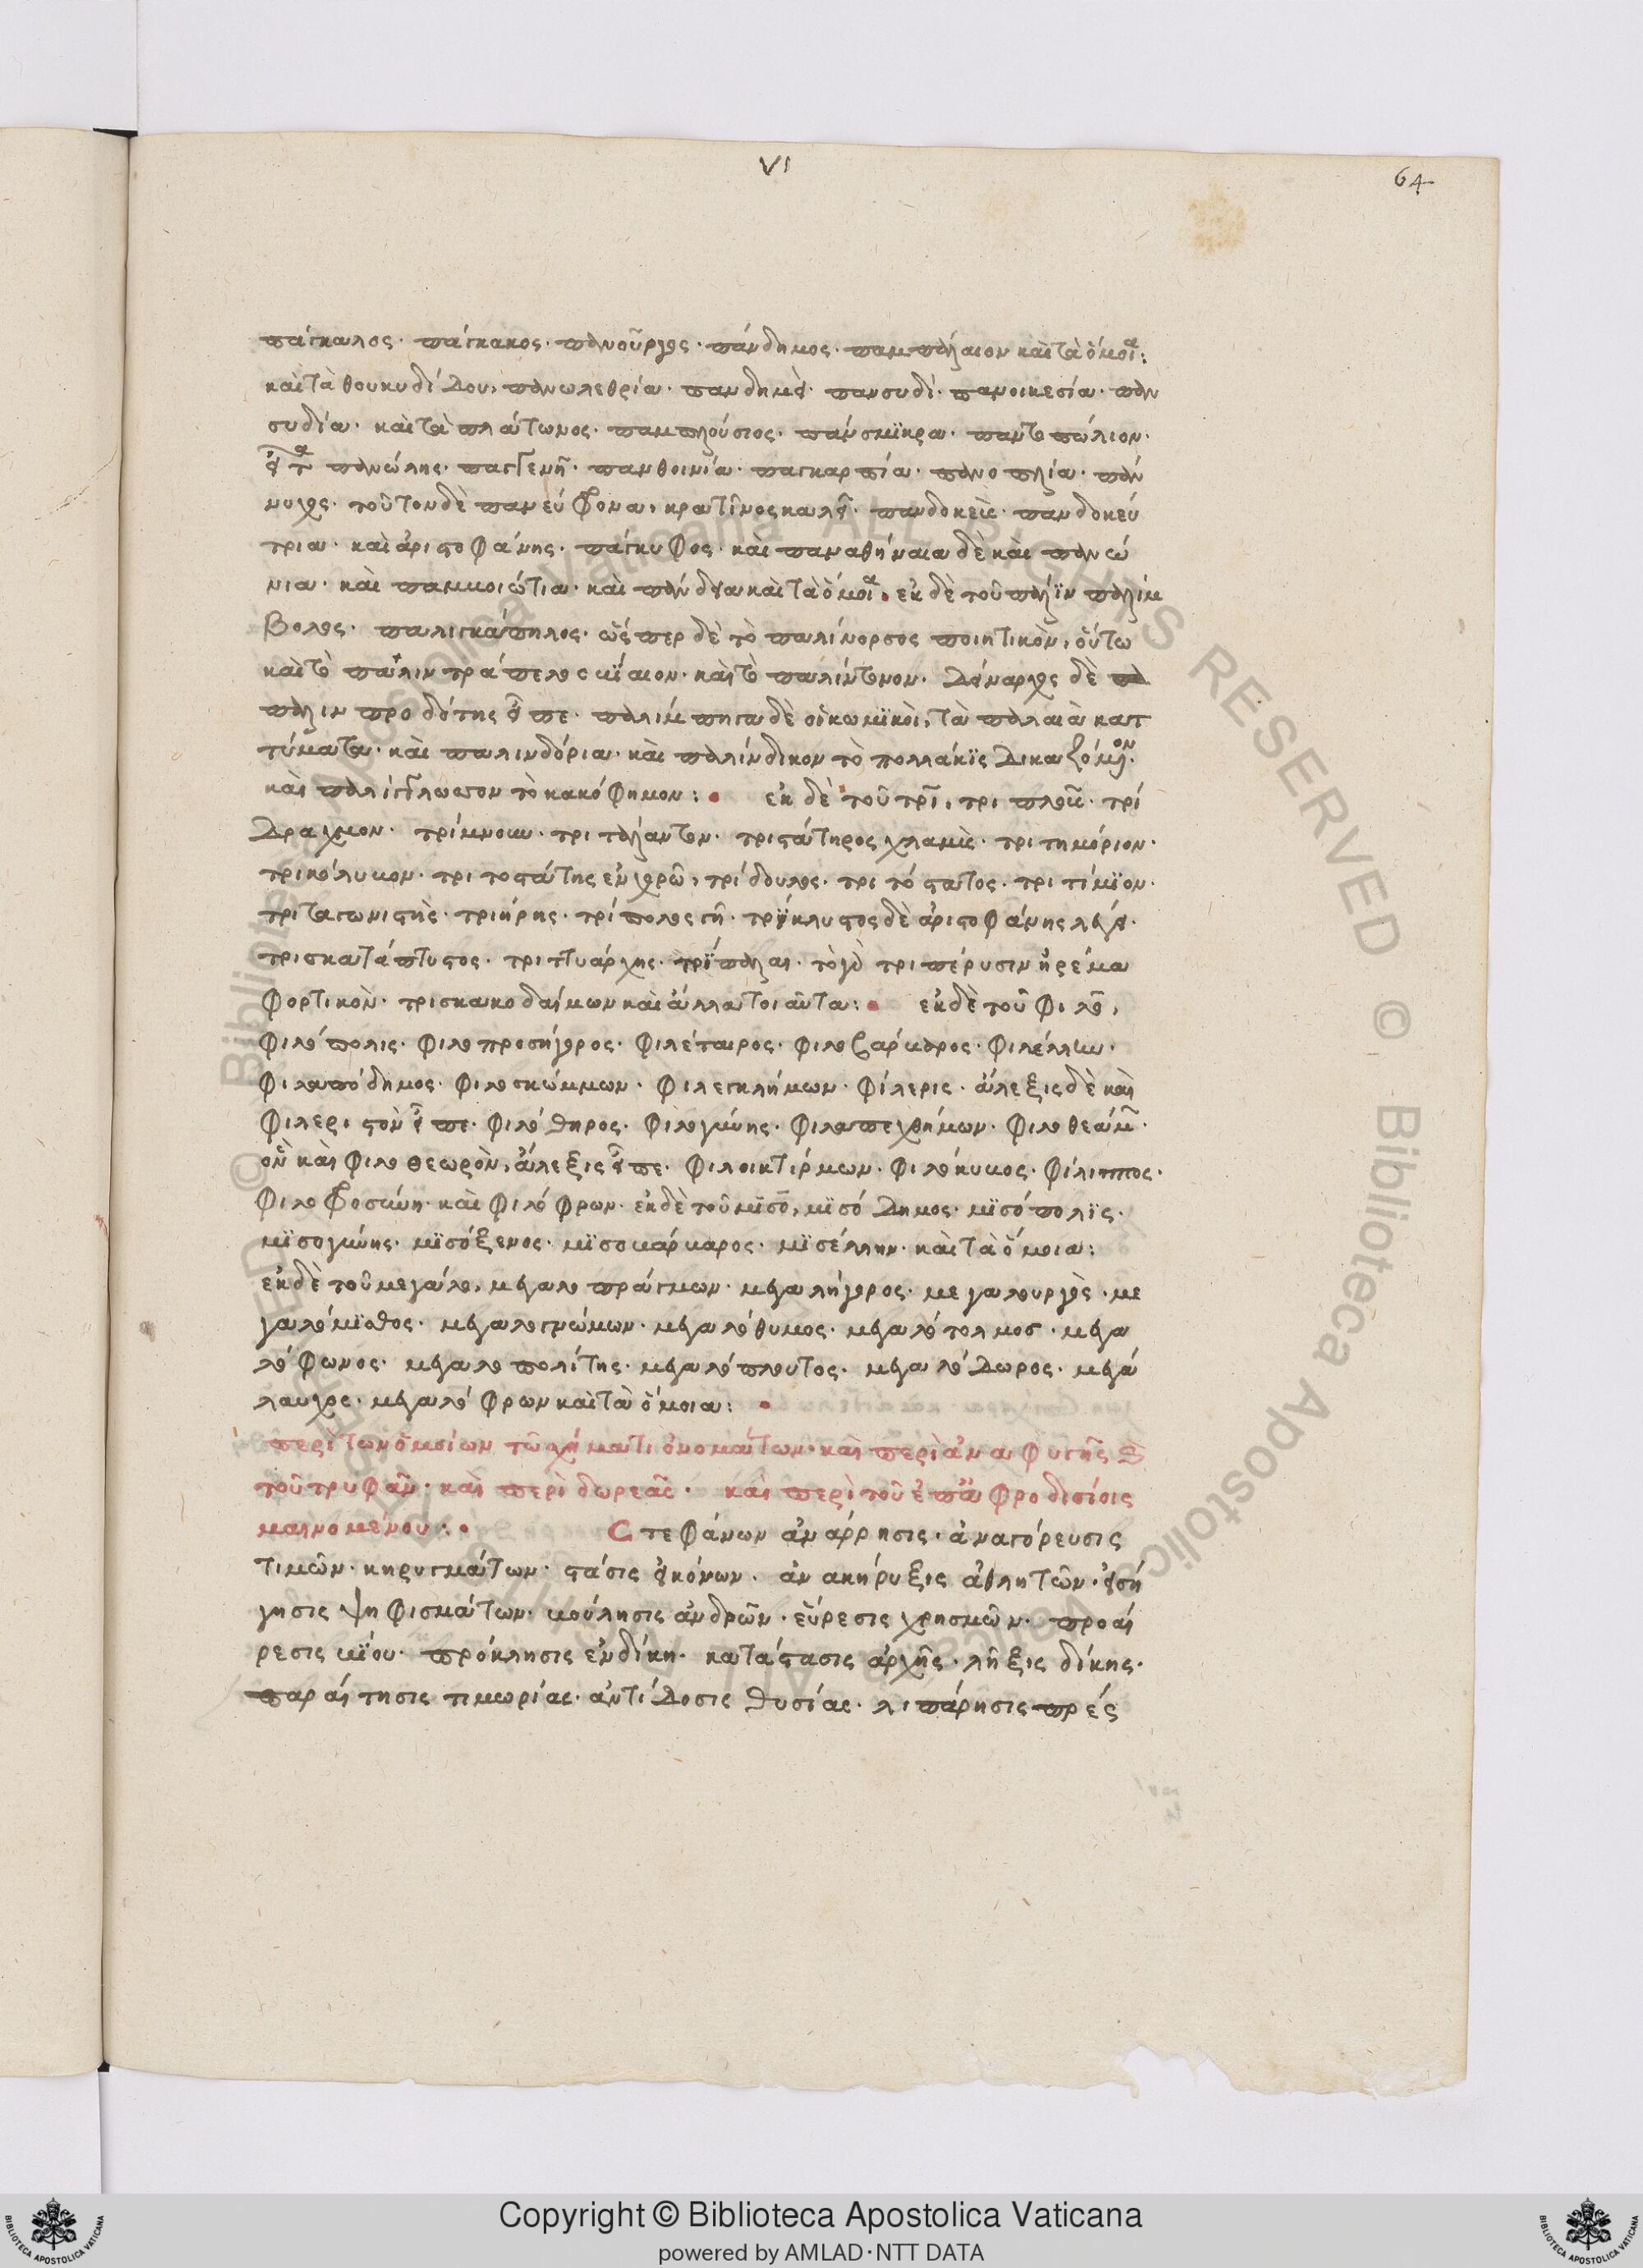 VI
64
πάγκαλος· πάγκακος· πανοῦργος· πάνδημος· παμπάλαιον καὶ τὰ ὅμοια:
καὶ τὰ θουκυδίδου, πανωλεθρία· πανδημεὶ· πανσυδί· πανοικεσία· παν
συδία· καὶ τὰ πλάτωνος· παμπλούσιος· πάνσμϊκρα· παντοπώλιον·
πανώλης· παγγενῆ· πανθοινία· παγκαρπία· πανοπλία· πάν
νυχος· τοῦτον δὲ πανεύφρονα, κρατῖνος καλεῖ· πανδοκεὺς· πανδοκεύ
τρια· καὶ ἀριστοφάνης· πάγκυφος· καὶ παναθήναια δὲ καὶ πανιώ
νια· καὶ παμβοιώτια· καὶ πάνδεια καὶ τὰ ὅμοια· ἐκ δὲ τοῦ πάλϊν παλίμ
βολος· παλιγκάπηλος· ὥσπερ δὲ τὸ παλίνορσος ποιητικὸν, οὕτω
καὶ τὸ παλιντράπελος βίαιον· καὶ τὸ παλίντονον· Δείναρχος δὲ πα
παλιν προδότης εἶπε· παλίμπηγα δὲ οἱ κωμϊκοὶ, τὰ παλαιὰ καττ
τύματα· καὶ παλινδόρια· καὶ παλίνδικον τὸ πολλάκϊς Δικαζόμενον·
καὶ παλίγγλωσσον τὸ κακόφημον: ἐκ δὲ τοῦ τρί, τρίπλους· τρί
Δραχμον· τρίμνουν· τριτάλαντον· τριστάτηρος χλαμὺς· τριτημόριον·
τρικόλυκον· τριτοστάτης ἐν χορῶ, τρίδουλος· τριτόστατος· τριτίμϊον·
τριταγωνιστὴς· τριήρης· τρίπολος γῆ· τρίκλυστος δὲ ἀριστοφάνης λέγει·
τρισκατάπτυστος· τριττυάρχης· τρϊπάλαι· τὸ γὰρ τριπέρυσιν ἠρέμα
φορτικὸν· τρισκακοδαίμων καὶ ἄλλα τοιαῦτα: ἐκ δὲ τοῦ φιλο,
φιλόπολις· φιλοπροσήγορος· φιλέταιρος· φιλοβάρβαρος· φιλέλλην·
φιλαπόδημος· φιλοσκώμμων· φιλεγκλήμων· φίλερις· ἄλεξις δὲ καὶ
φιλεριστὸν εἶπε· φιλόθηρος· φιλογύνης· φιλαπεχθήμων· φιλοθεάμων·
ὃν καὶ φιλοθεωρὸν, ἄλεξις εἶπε· φιλοικτίρμων· φιλόκυβος· φίλιππος·
φιλοφροσύνη· καὶ φιλόφρων· ἐκ δὲ τοῦ μϊσο, μϊσόΔημος· μϊσόπολϊς·
μϊσογύνης· μϊσόξενος· μϊσοβάρβαρος· μϊσέλλην· καὶ τὰ ὅμοια:
ἐκ δὲ τοῦ μεγάλο, μεγαλοπράγμων· μεγαλήγορος· μεγαλουργὸς· με
γαλόμϊσθος· μεγαλογνώμων· μεγαλόθυμος· μεγαλότολμος· μεγα
λόφωνος· μεγαλοπολίτης· μεγαλόπλουτος· μεγαλόΔωρος· μεγά
λαυχος· μεγαλόφρων καὶ τὰ ὅμοια:
περὶ τῶν ὁμοίων τῶ σχήματι ὀνομάτων· καὶ περὶ ἀναφυγῆς
τοῦ τρυφᾶν· καὶ περὶ δωρεᾶς· καὶ περὶ τοῦ ἐπ' ἀφροδισίοις
μαινομένου: Στεφάνων ἀνάρρησις· ἀναγόρευσις
τιμῶν· κηρυγμάτων· στάσις εἰκόνων· ἀνακήρυξις ἀθλητῶν· εἰσή
γησις ψηφισμάτων· βούλησις ἀνδρῶν· εὕρεσις χρησμῶν· προαί
ρεσις βίου· πρόκλησις ἐν δίκη· κατάστασις ἀρχῆς· λῆξις δίκης·
παραίτησις τιμωρίας· ἀντίΔοσις θυσίας· λιπάρησις πρέσ